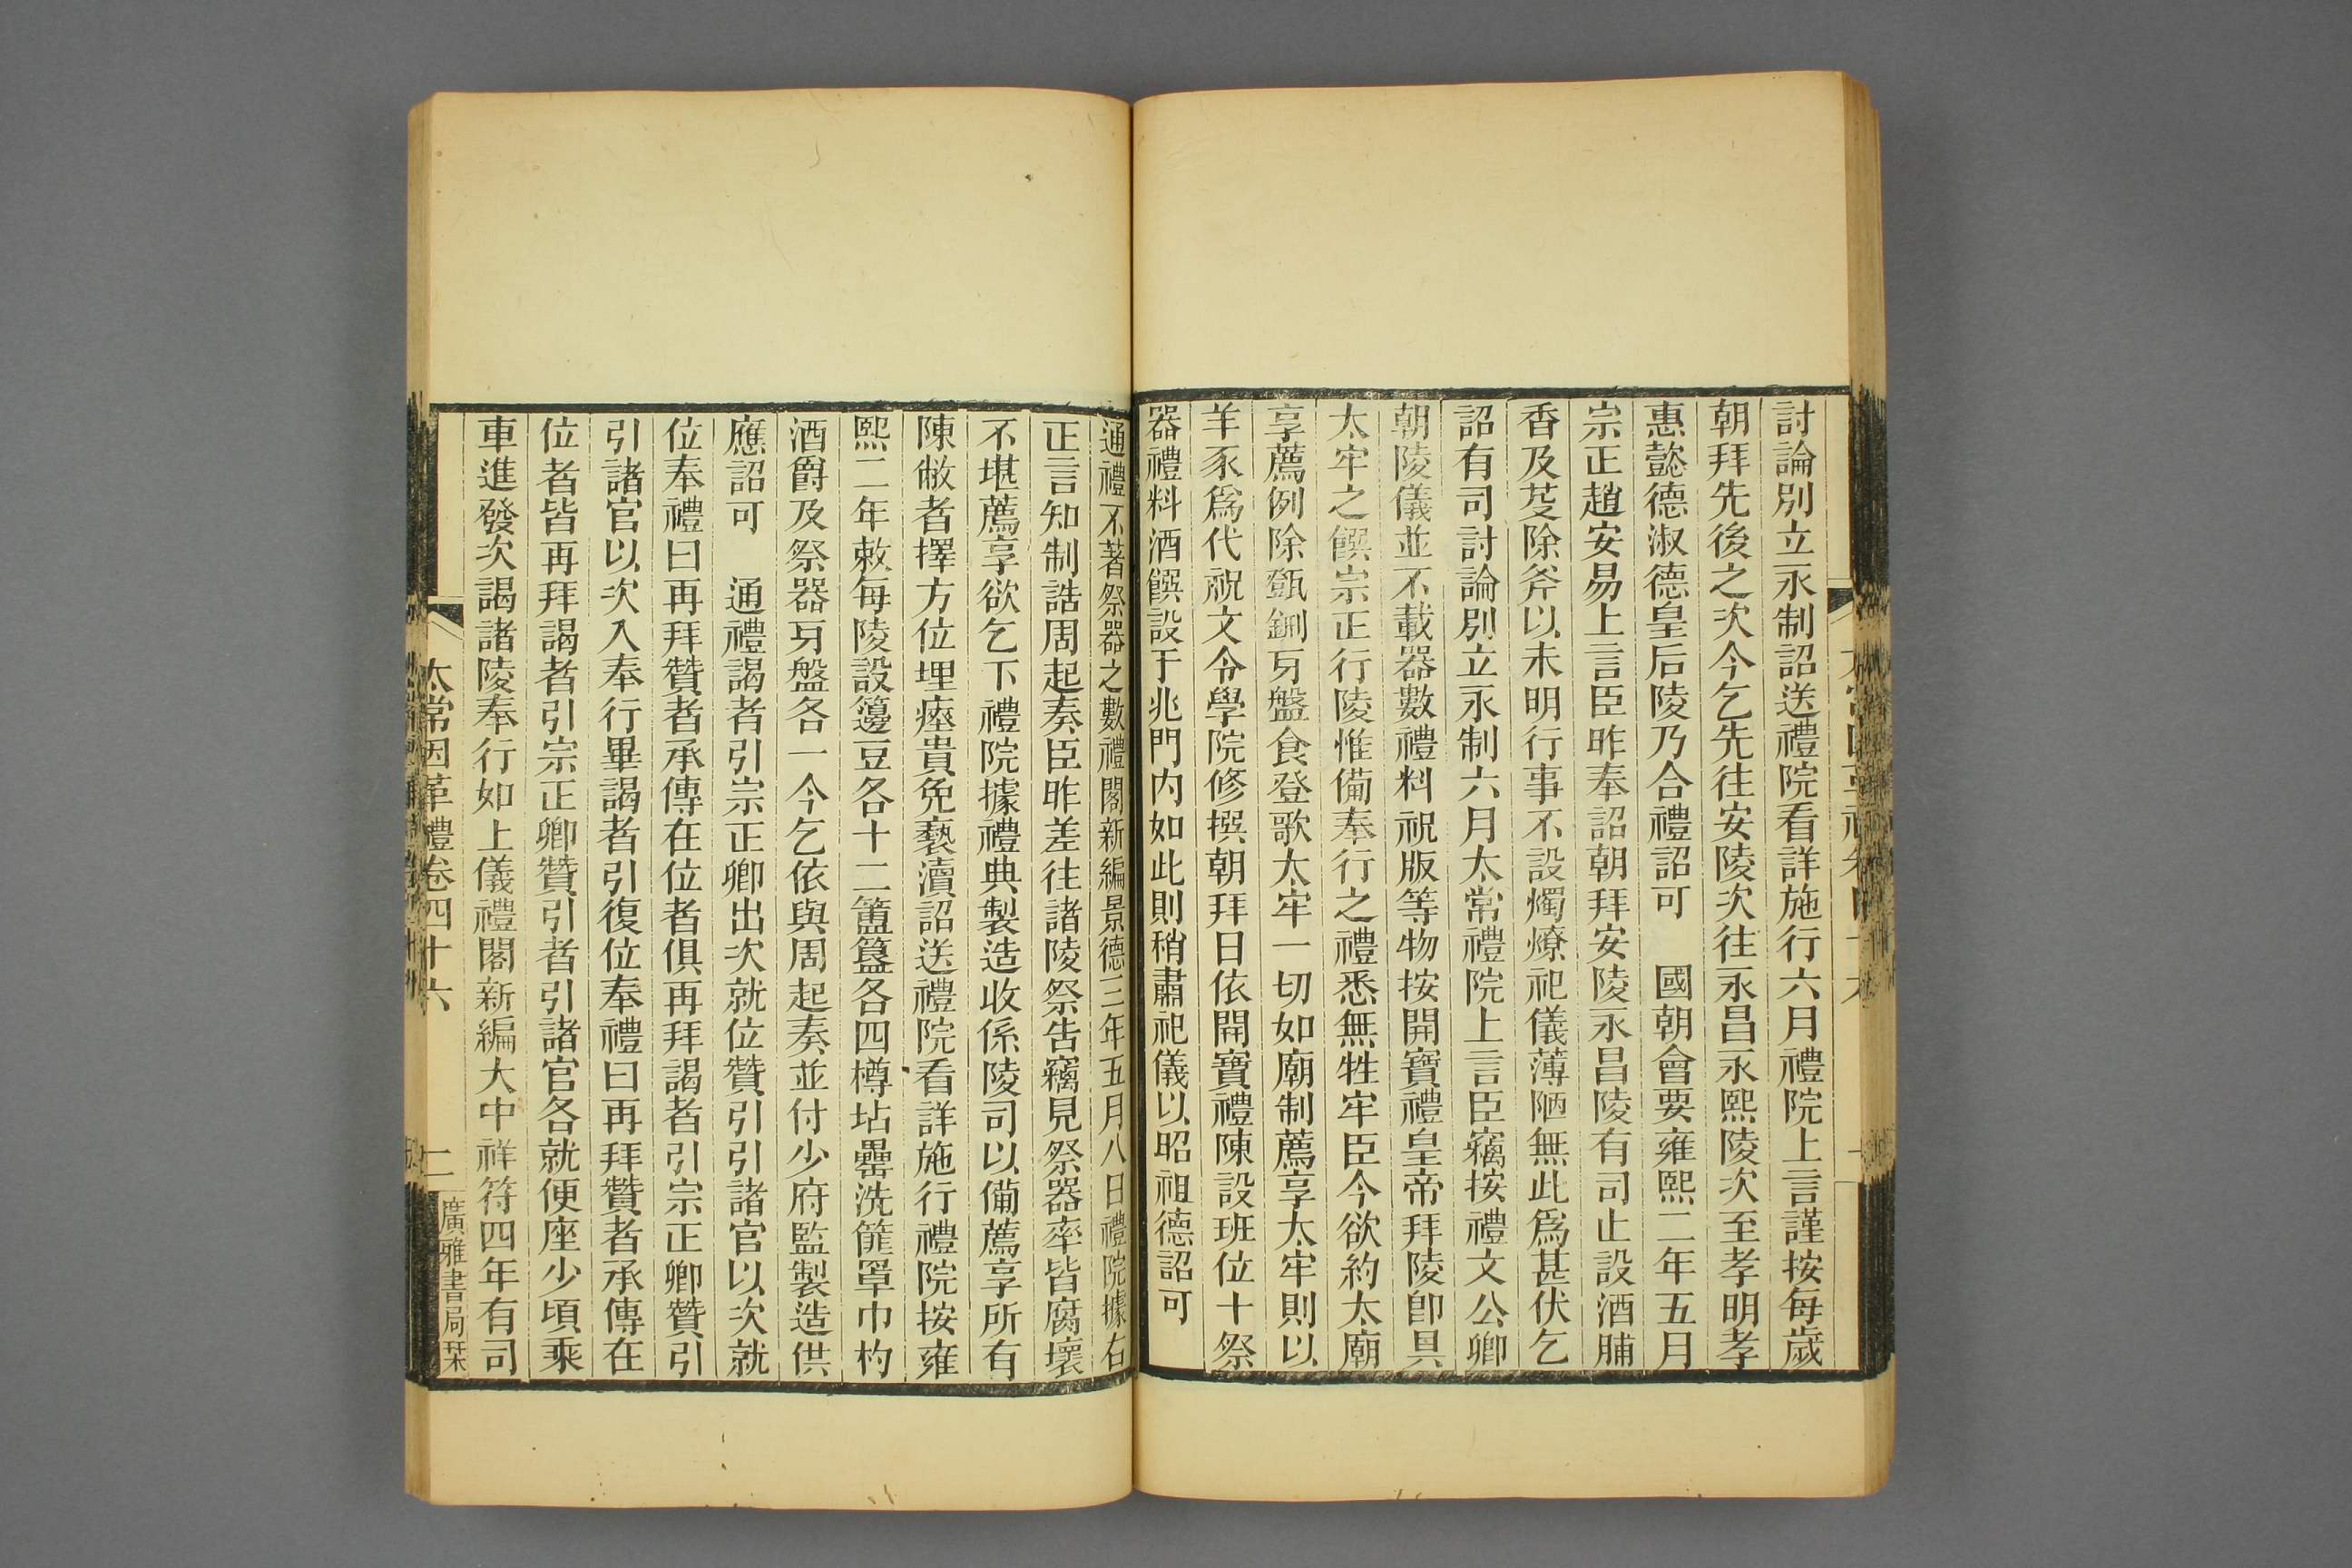 討論別立永制詔送禮院看詳施行六月禮院上言謹按每歲
朝拜先後之次今乞先往安陵次往永昌永熙陵次至孝明孝
惠懿德淑德皇后陵乃合禮詔可　國朝會要雍熙二年五月
宗正趙安易上言臣昨奉詔朝拜安陵永昌陵有司止設酒脯
香及芟除斧以未明行事不設燭燎祀儀薄陋無此爲甚伏乞
詔有司討論別立永制六月太常禮院上言臣竊按禮文公卿
朝陵儀並不載器數禮料祝版等物按開寶禮皇帝拜陵卽具
太牢之饌宗正行陵惟備奉行之禮悉無牲牢臣今欲約太廟
享薦例除甑鉶牙盤食登歌太牢一切如廟制薦享太牢則以
羊豕爲代祝文令學院修撰朝拜日依開寶禮陳設班位十祭
器禮料酒饌設于兆門内如此則稍肅祀儀以昭祖德詔可
通禮不著祭器之數禮閣新編景德三年五月八日禮院據右
正言知制誥周起奏臣昨差往諸陵祭告竊見祭器率皆腐壞
不堪薦享欲乞下禮院據禮典製造收係陵司以備薦享所有
陳敝者擇方位埋瘞貴免褻瀆詔送禮院看詳施行禮院按雍
熙二年敕每陵設籩豆各十二簠簋各四樽坫罍洗篚罩巾杓
酒爵及祭器牙盤各一今乞依與周起奏並付少府監製造供
應詔可　通禮謁者引宗正卿出次就位贊引引諸官以次就
位奉禮曰再拜贊者承傳在位者俱再拜謁者引宗正卿贊引
引諸官以次入奉行畢謁者引復位奉禮曰再拜贊者承傳在
位者皆再拜謁者引宗正卿贊引者引諸官各就便座少頃乘
車進發次謁諸陵奉行如上儀禮閣新編大中祥符四年有司
太常因革禮卷四十六　二　廣雅書局栞